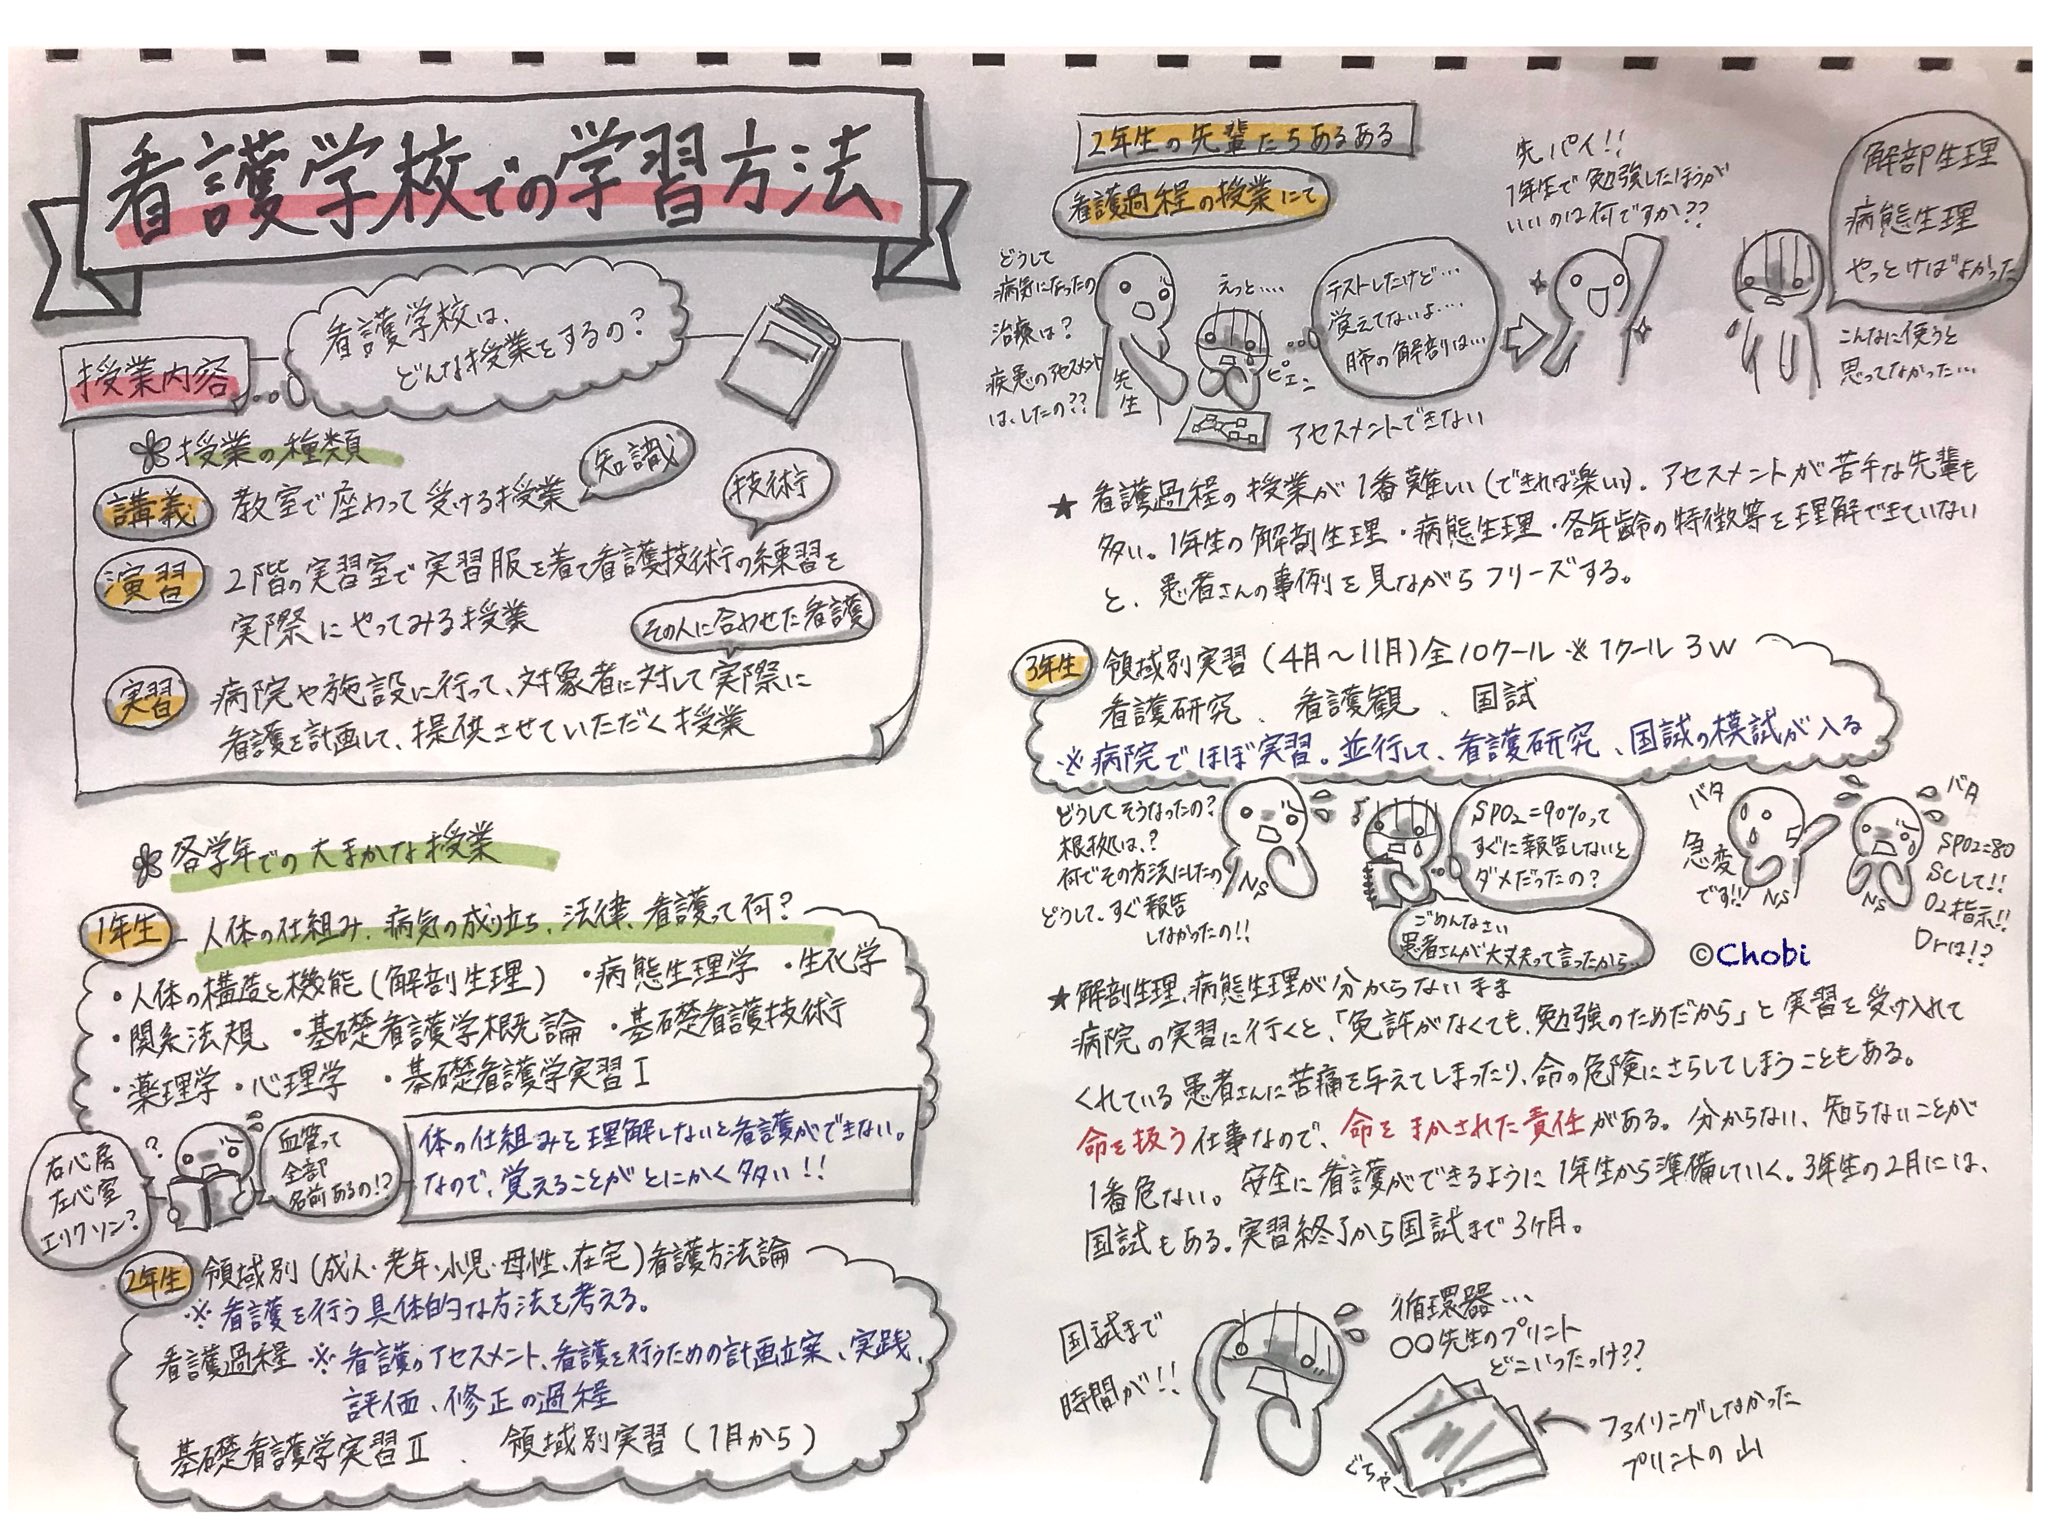 看護学校での学習方法
看護学校は、
どんな授業をするの?
授業内容
授業の種類
知識
講義 教室で座わって受ける授業
技術
演習 2階の実習室で実習服を着て看護技術の練習を
実際にやってみる授業
その人に合わせた看護
実習 病院や施設に行って、対象者に対して実際に
看護を計画して、提供させていただく授業
各学年での大まかな授業
1年生 人体の仕組み、病気の成り立ち、法律、看護って何?
・人体の構造と機能(解剖生理) ・病態生理学 ・生化学
・関係法規 ・基礎看護学概論 ・基礎看護技術
・薬理学 ・心理学 ・基礎看護学実習I
右心房
左心室
エリクソン?
?
血管って
全部
名前あるの!?
体の仕組みを理解しないと看護ができない。
なので、覚えることがとにかく多い!!
2年生 領域別(成人・老年・小児・母性・在宅)看護方法論
※看護を行う具体的な方法を考える。
看護過程 ※看護のアセスメント、看護を行うための計画立案、実践、
評価、修正の過程
基礎看護学実習II 、領域別実習(1月から)
2年生の先輩たちあるある
看護過程の授業にて
どうして
病気になったの
治療は?
疾患のアセスメント
は、したの??
先生
えっと....
ピエン
テストしたけど...
覚えてないよ...
肺の解剖は...
アセスメントできない
先パイ!!
1年生で勉強したほうが
いいのは何ですか??
解剖生理
病態生理
やっとけばよかった
こんなに使うと
思ってなかった...
★ 看護過程の授業が1番難しい(できれば楽しい)。アセスメントが苦手な先輩も
多い。1年生の解剖生理・病態生理・各年齢の特徴等を理解できていない
と、患者さんの事例を見ながらフリーズする。
3年生 領域別実習(4月〜11月)全10クール ※1クール3W
看護研究 、看護観 、国試
※病院でほぼ実習。並行して、看護研究、国試の模試が入る
どうしてそうなったの?
根拠は?
何でその方法にしたの
どうして、すぐ報告
しなかったの!!
NS
SPO2=90%って
すぐに報告しないと
ダメだったの?
ごめんなさい
患者さんが大丈夫って言ったから...
バタ
急変
です!!
NS
バタ
NS
SPO2=80
SCして!!
O2指示!!
Drは!?
©Chobi
★解剖生理、病態生理が分からないまま
病院の実習に行くと、「免許がなくても、勉強のためだから」と実習を受け入れて
くれている患者さんに苦痛を与えてしまったり、命の危険にさらしてしまうこともある。
命を扱う仕事なので、命をまかされた責任がある。分からない、知らないことが
1番危ない。安全に看護ができるように1年生から準備していく。3年生の2月には、
国試もある。実習終了から国試まで3ヶ月。
国試まで
時間が!!
循環器...
〇〇先生のプリント
どこいったっけ??
ぐちゃ
ファイリングしなかった
プリントの山